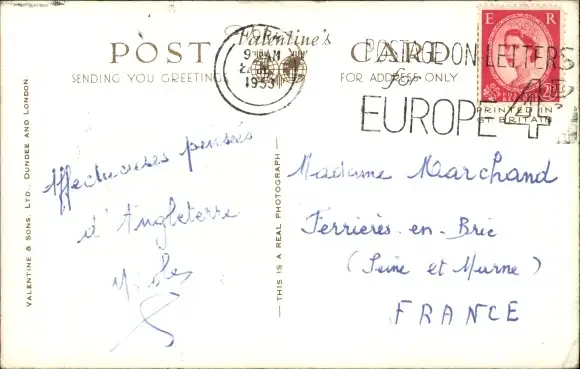 POST CARD
Valentine's
SENDING YOU GREETINGS
FOR ADDRESS ONLY
9 AM
1953
POSTAGE ON LETTERS
for
EUROPE 4D
E R
PRINTED IN
GT BRITAIN
VALENTINE & SONS, LTD. DUNDEE AND LONDON.
Affectueuses pensées
d'Angleterre
— THIS IS A REAL PHOTOGRAPH —
Madame Marchand
Ferrières-en-Brie
(Seine et Marne)
FRANCE